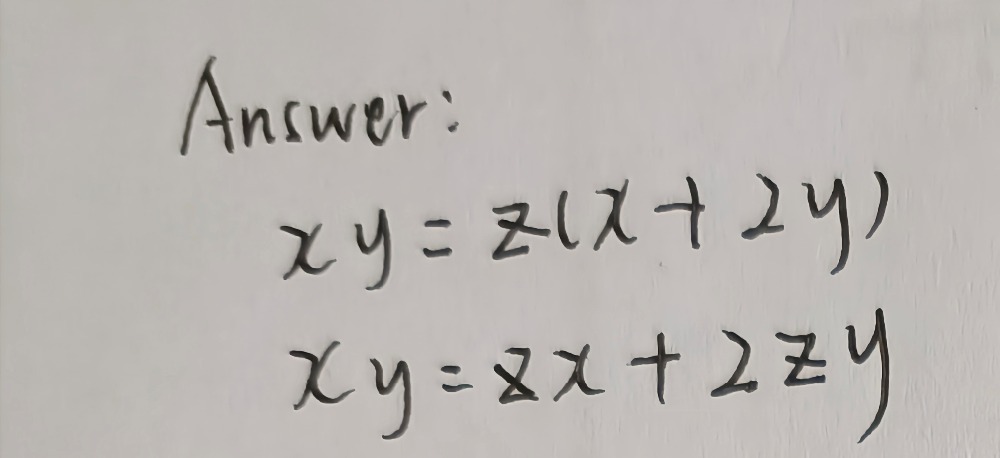 Answer:
xy = z(x + 2y)
xy = zx + 2zy